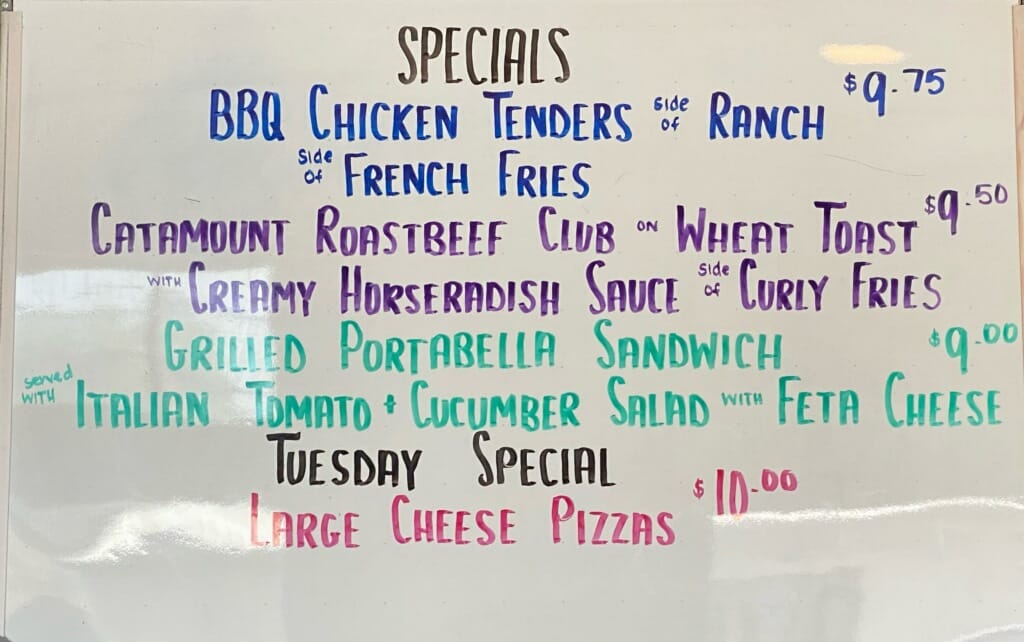 SPECIALS
BBQ CHICKEN TENDERS side of RANCH $9.75
side of FRENCH FRIES
CATAMOUNT ROASTBEEF CLUB ON WHEAT TOAST $9.50
WITH CREAMY HORSERADISH SAUCE side of CURLY FRIES
GRILLED PORTABELLA SANDWICH $9.00
served WITH ITALIAN TOMATO + CUCUMBER SALAD WITH FETA CHEESE
TUESDAY SPECIAL
LARGE CHEESE PIZZAS $10.00